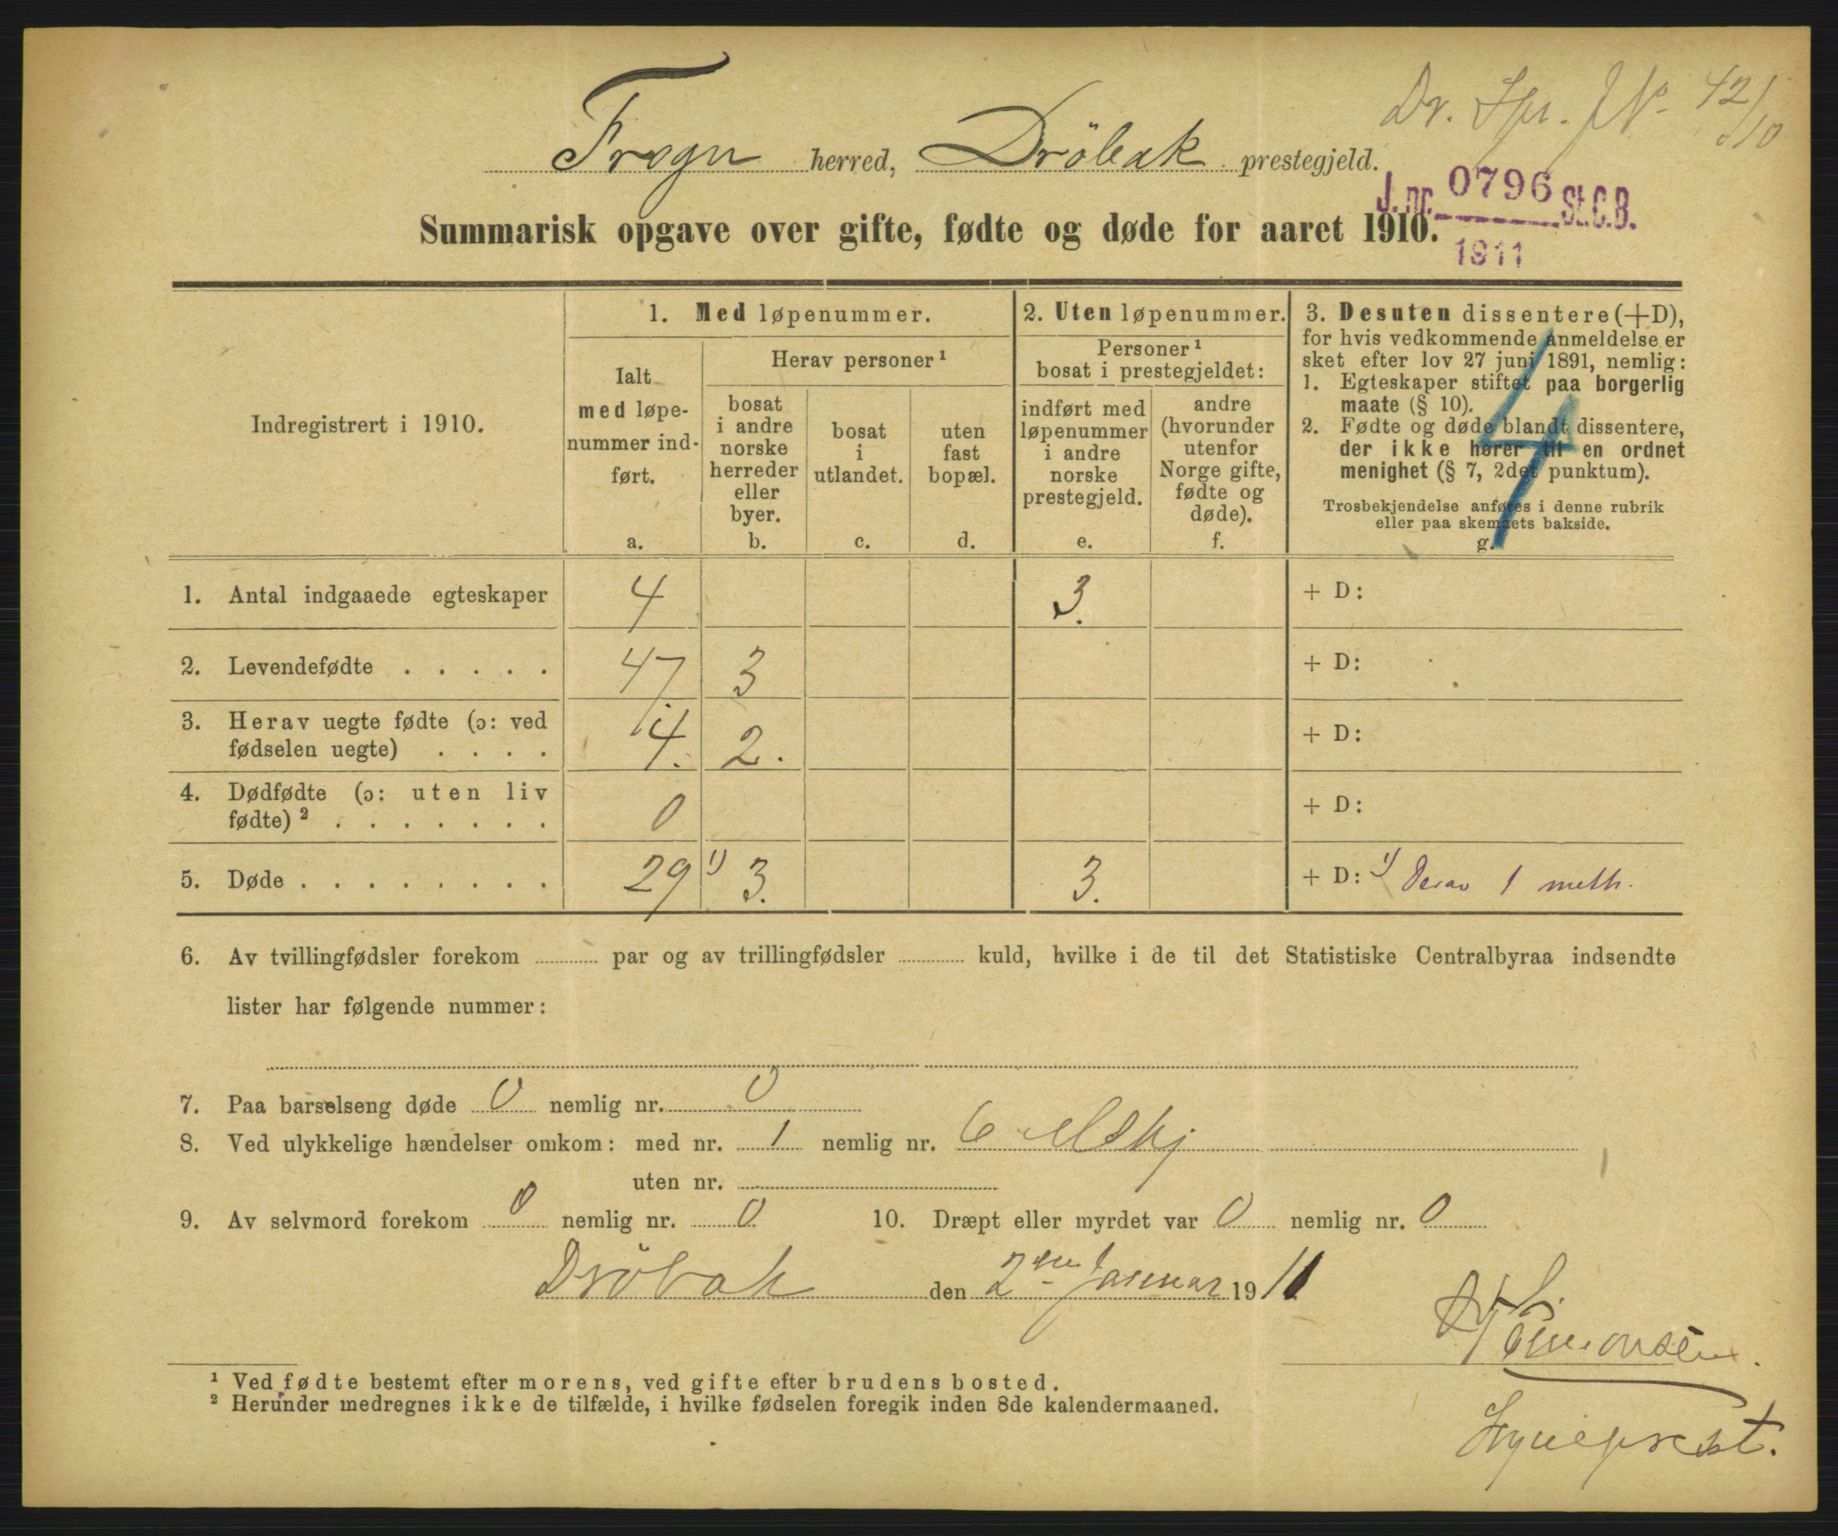 Dr. Spr. J No. 42/10
Frogn herred, Dröbak prestegjeld.
J. nr. 0796 St.C.B.
1911
Summarisk opgave over gifte, fødte og døde for aaret 1910.
Indregistrert i 1910.
1. Med løpenummer.
Ialt med løpenummer indført.
a.
Herav personer¹
bosat i andre norske herreder eller byer.
b.
bosat i utlandet.
c.
uten fast bopæl.
d.
2. Uten løpenummer.
Personer¹ bosat i prestegjeldet:
indført med løpenummer i andre norske prestegjeld.
e.
andre (hvorunder utenfor Norge gifte, fødte og døde).
f.
3. Desuten dissentere (+D),
for hvis vedkommende anmeldelse er
sket efter lov 27 juni 1891, nemlig:
1. Egteskaper stiftet paa borgerlig
maate (§ 10).
2. Fødte og døde blandt dissentere,
der ikke hører til en ordnet
menighet (§ 7, 2det punktum).
Trosbekjendelse anføres i denne rubrik
eller paa skemaets bakside.
g.
4
1. Antal indgaaede egteskaper 4 3. + D:
2. Levendefødte . . . . . 47 3 + D:
3. Herav uegte fødte (ɔ: ved
fødselen uegte) . . . . 4. 2. + D:
4. Dødfødte (ɔ: uten liv
fødte)² . . . . . . . 0 + D:
5. Døde . . . . . . . . 29 ¹) 3. 3. + D: ¹) Derav 1 meth.
6. Av tvillingfødsler forekom ........ par og av trillingfødsler ........ kuld, hvilke i de til det Statistiske Centralbyraa indsendte
lister har følgende nummer:
7. Paa barselseng døde 0 nemlig nr. 0
8. Ved ulykkelige hændelser omkom: med nr. 1 nemlig nr. 6 Mskj
uten nr.
9. Av selvmord forekom 0 nemlig nr. 0 10. Dræpt eller myrdet var 0 nemlig nr. 0
Dröbak den 2en Januar 1911
¹ Ved fødte bestemt efter morens, ved gifte efter brudens bosted.
² Herunder medregnes ikke de tilfælde, i hvilke fødselen foregik inden 8de kalendermaaned.
Sogneprest.